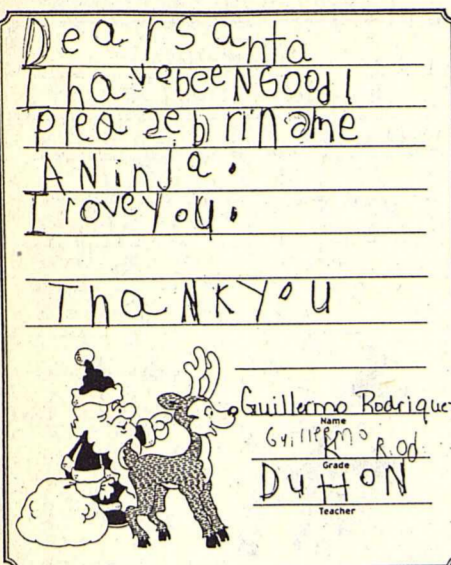 Dear Santa
I have been Good!
pleaze brin ame
A Ninja.
I rove you.
Thank you
Guillermo Rodrique
Name
Guillermo Rod
K
Grade
DuttoN
Teacher